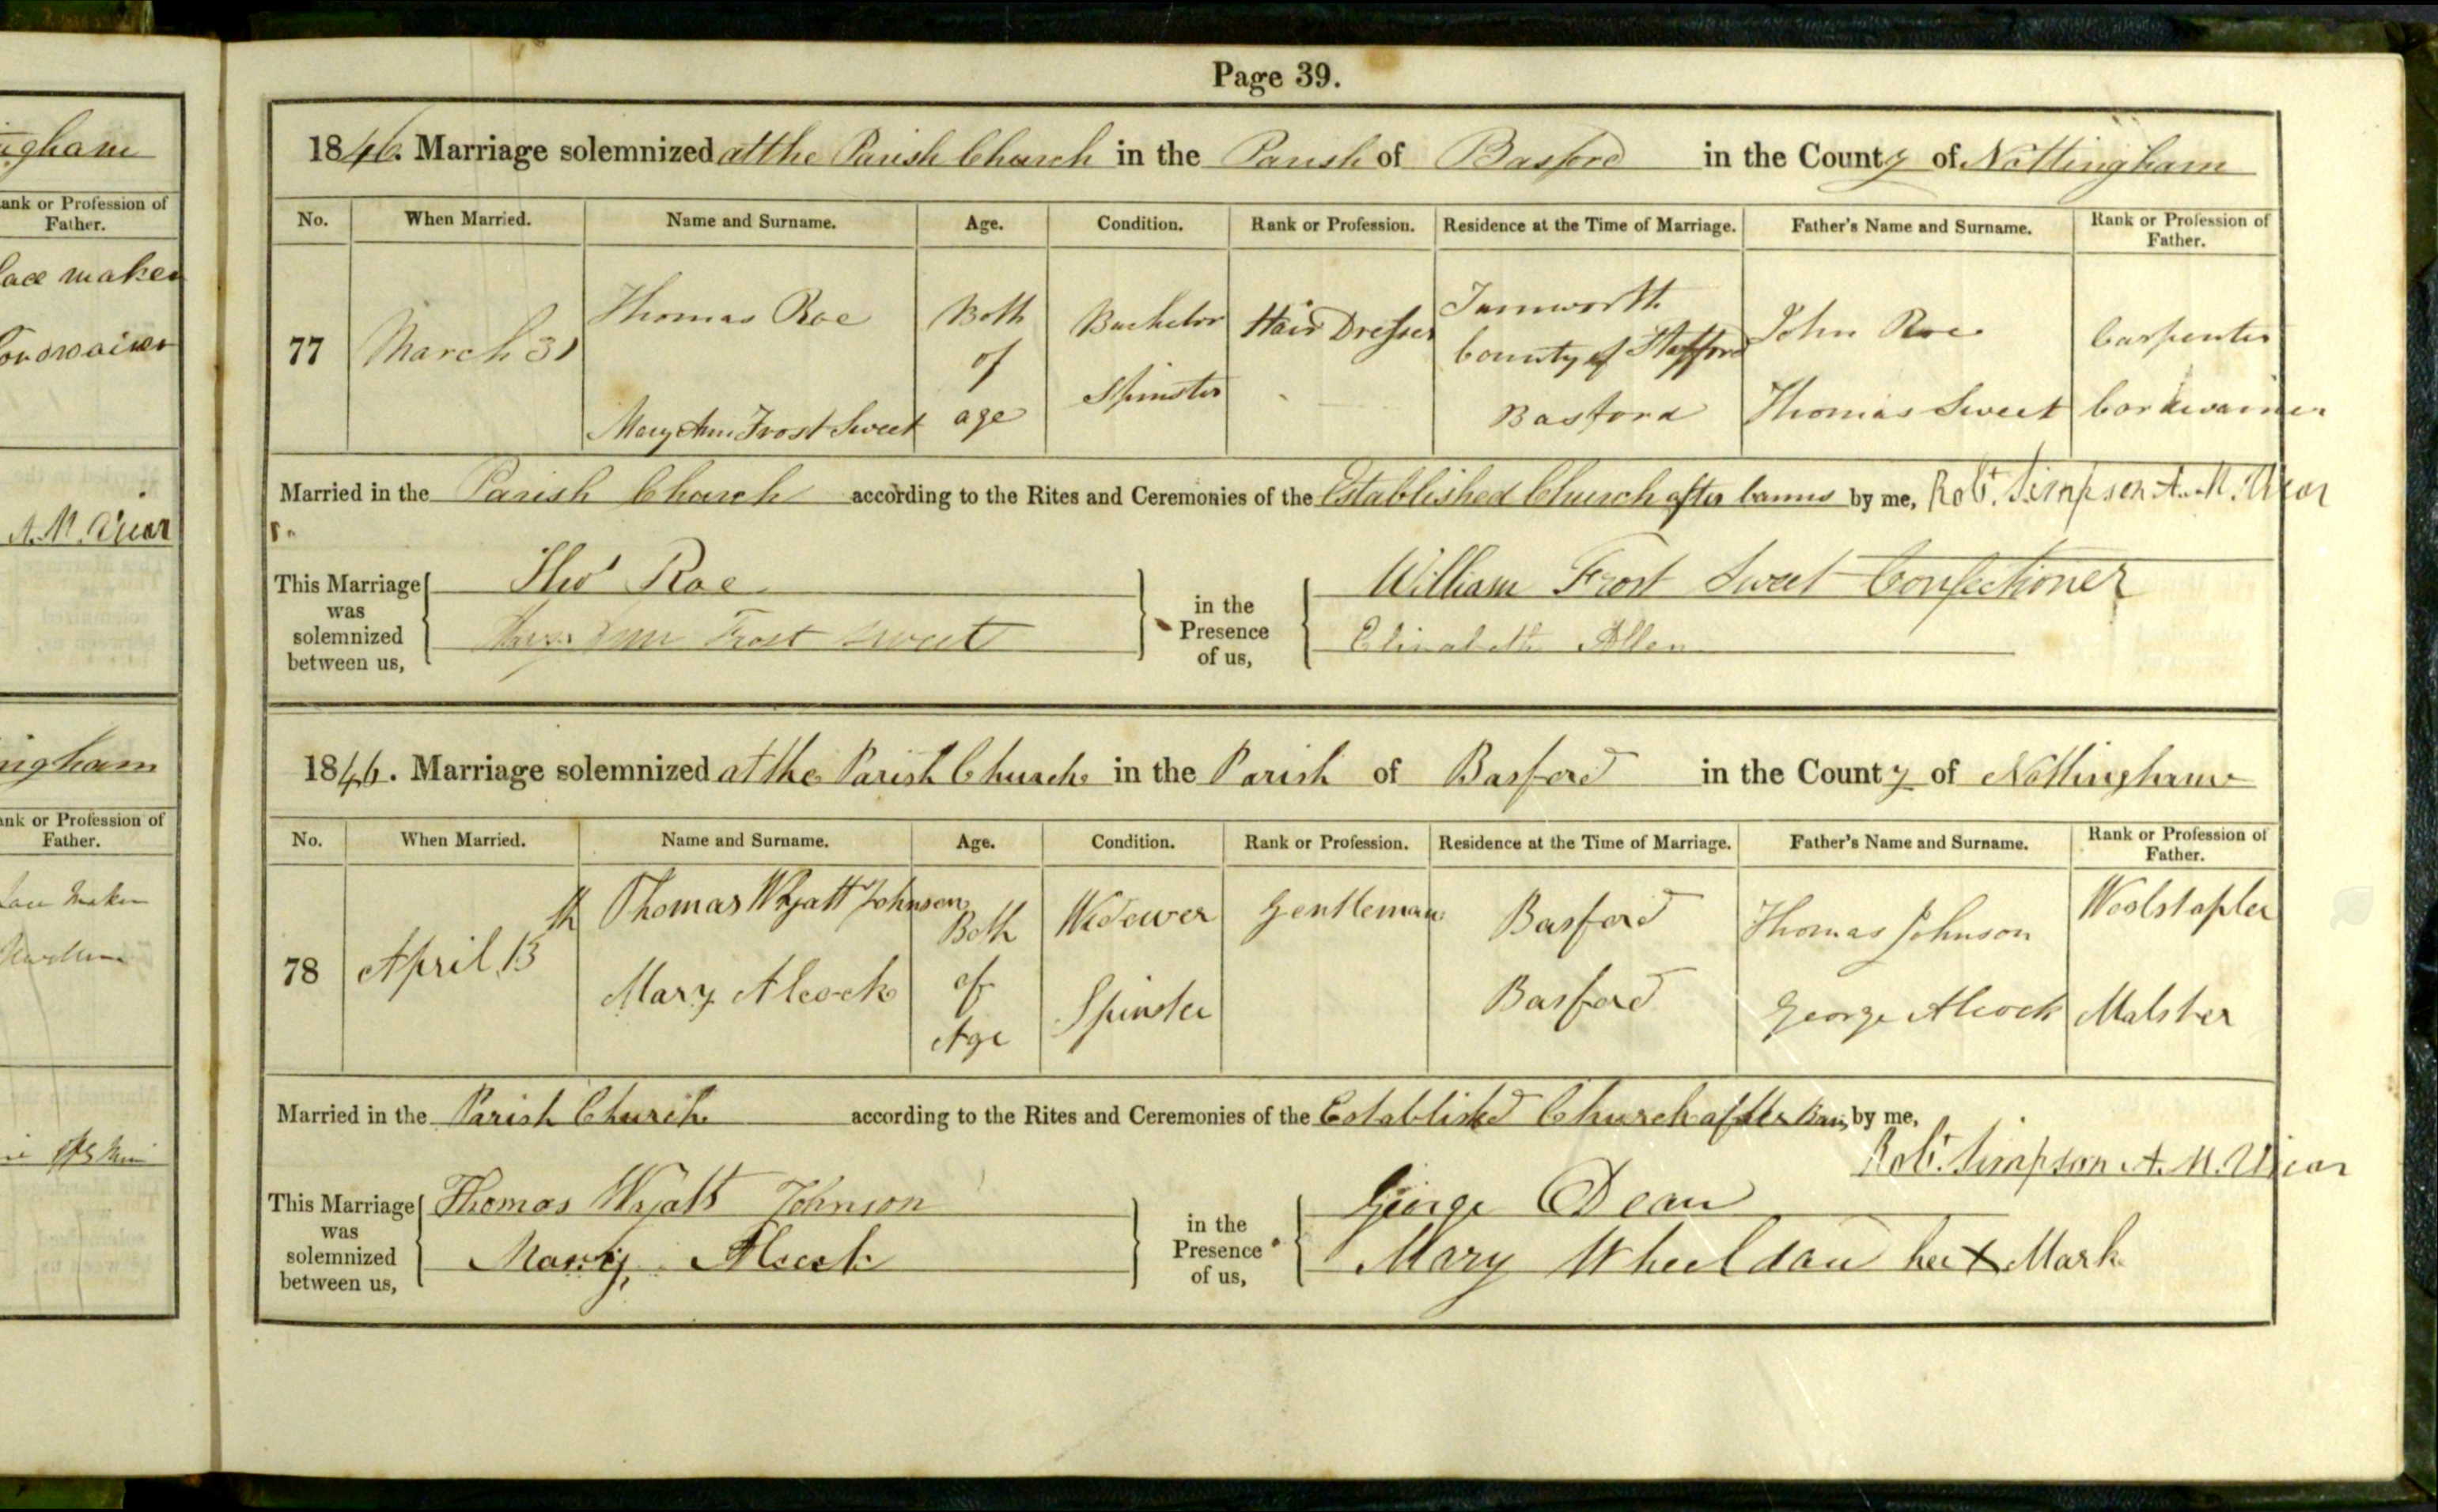 Page 39.
1846. Marriage solemnized at the Parish Church in the Parish of Basford in the County of Nottingham
No. When Married. Name and Surname. Age. Condition. Rank or Profession. Residence at the Time of Marriage. Father's Name and Surname. Rank or Profession of Father.
77 March 31 Thomas Roe Both of age Bachelor Hair Dresser Tamworth County of Stafford John Roe Carpenter
Mary Ann Frost Sweet Spinster Basford Thomas Sweet Cordwainer
Married in the Parish Church according to the Rites and Ceremonies of the Established Church after banns by me, Robt. Simpson A.M. Vicar
This Marriage was solemnized between us, Thos Roe in the Presence of us, William Frost Sweet Confectioner
Mary Ann Frost Sweet Elizabeth Allen
1846. Marriage solemnized at the Parish Church in the Parish of Basford in the County of Nottingham
No. When Married. Name and Surname. Age. Condition. Rank or Profession. Residence at the Time of Marriage. Father's Name and Surname. Rank or Profession of Father.
78 April 13th Thomas Wyatt Johnson Both of Age Widower Gentleman Basford Thomas Johnson Woolstapler
Mary Alcock Spinster Basford George Alcock Malster
Married in the Parish Church according to the Rites and Ceremonies of the Established Church after by me,
Robt. Simpson A.M. Vicar
This Marriage was solemnized between us, Thomas Wyatt Johnson in the Presence of us, George Dean
Mary Alcock Mary Wheeldon her X Mark
ngham
ank or Profession of Father.
lace maker
Cordwainer
A.M. Vicar
ingham
nk or Profession of Father.